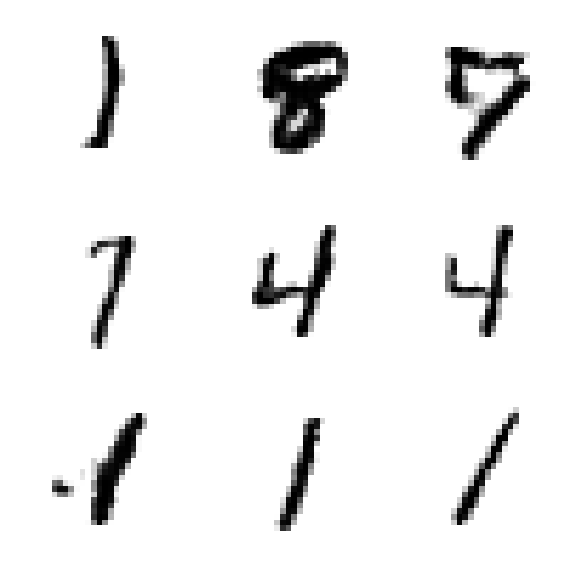 1 8 9
7 4 4
1 1 1